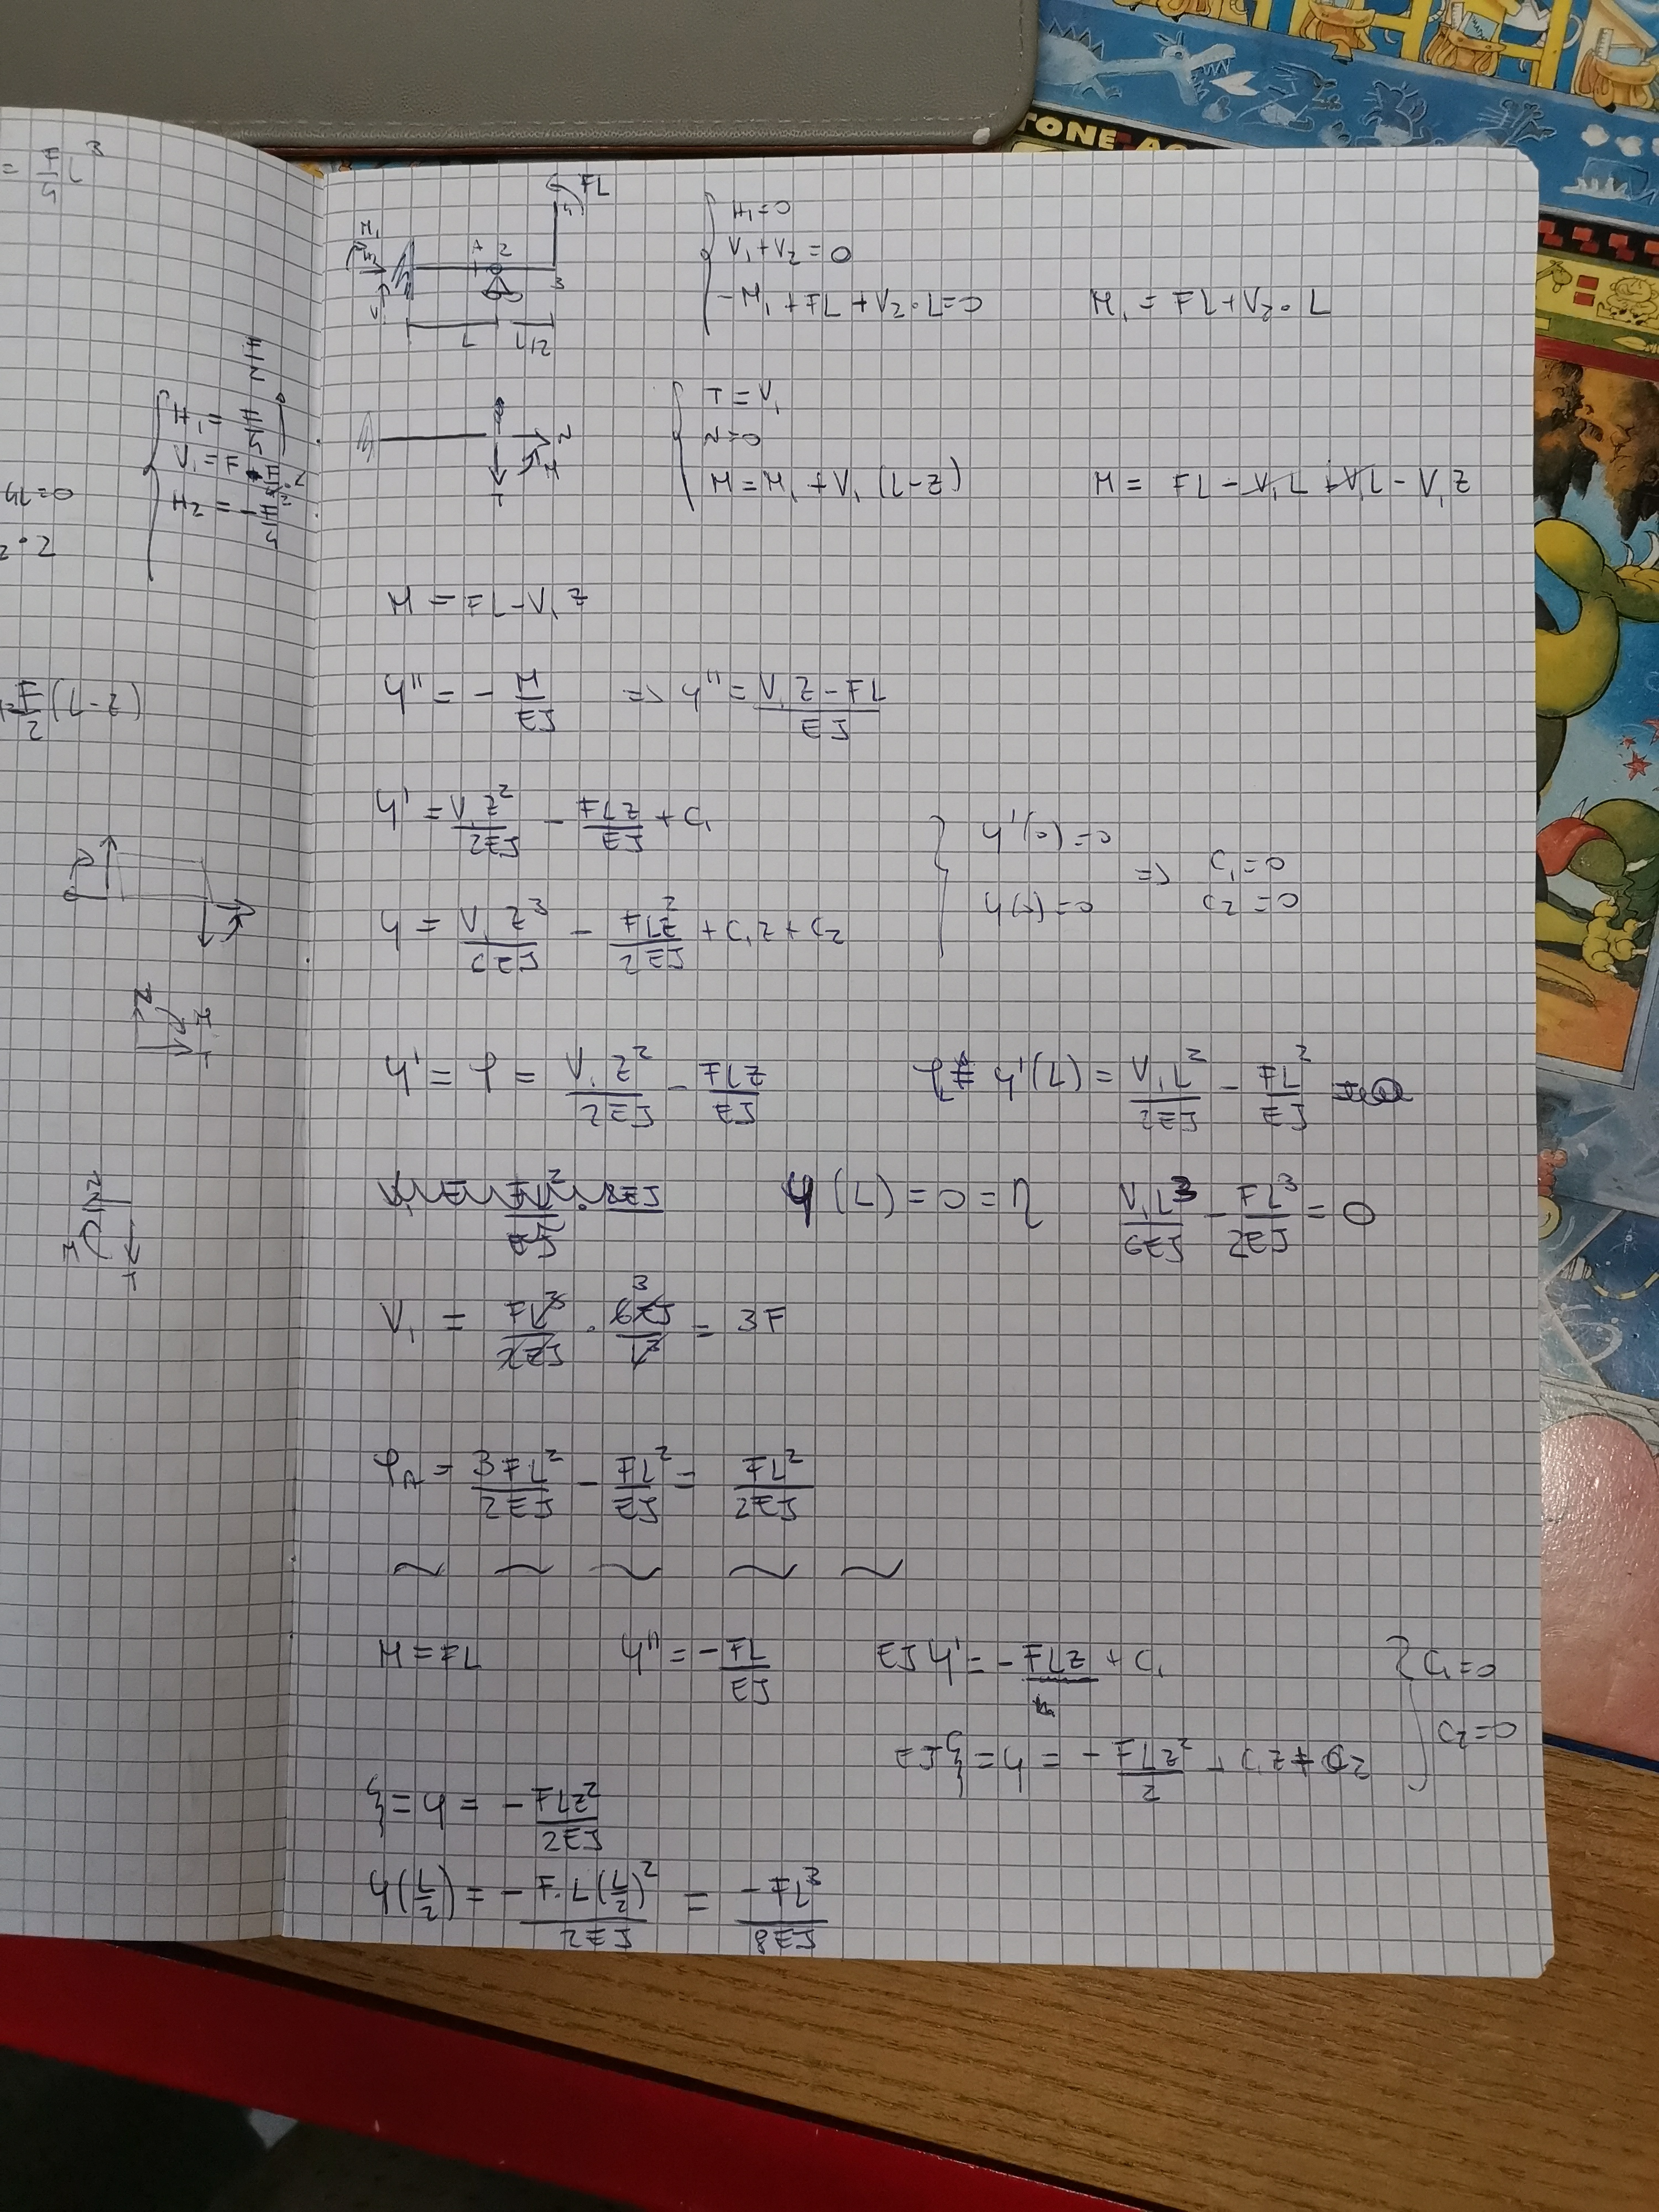 = F/4 L³
H₁ = F/4
V₁ = F
H₂ = -F/4
4L=0
F/2 (L-z)
TONE AG
FL
M₁
V₁
A 2
3
L L/2
H₁=0
V₁+V₂=0
-M₁+FL+V₂·L=0 M₁ = FL+V₂·L
N
M
T
T=V₁
N=0
M=M₁+V₁(L-z) M = FL-V₁L+V₁L-V₁z
M = FL-V₁z
y'' = - M/EJ => y'' = (V₁z-FL)/EJ
y' = V₁z²/2EJ - FLz/EJ + C₁
y'(0)=0 => C₁=0
y = V₁z³/6EJ - FLz²/2EJ + C₁z + C₂
y(0)=0 C₂=0
y' = φ = V₁z²/2EJ - FLz/EJ y'(L) = V₁L²/2EJ - FL²/EJ
y(L)=0=η V₁L³/6EJ - FL³/2EJ = 0
V₁ = FL³/2EJ · 6EJ/L³ = 3F
φA = 3FL²/2EJ - FL²/EJ = FL²/2EJ
~ ~ ~ ~ ~
M=FL y'' = -FL/EJ EJy' = -FLz + C₁ C₁=0
EJξ = y = -FLz²/2 + C₁z + C₂ C₂=0
ξ = y = -FLz²/2EJ
y(L/2) = -F·L(L/2)²/2EJ = -FL³/8EJ